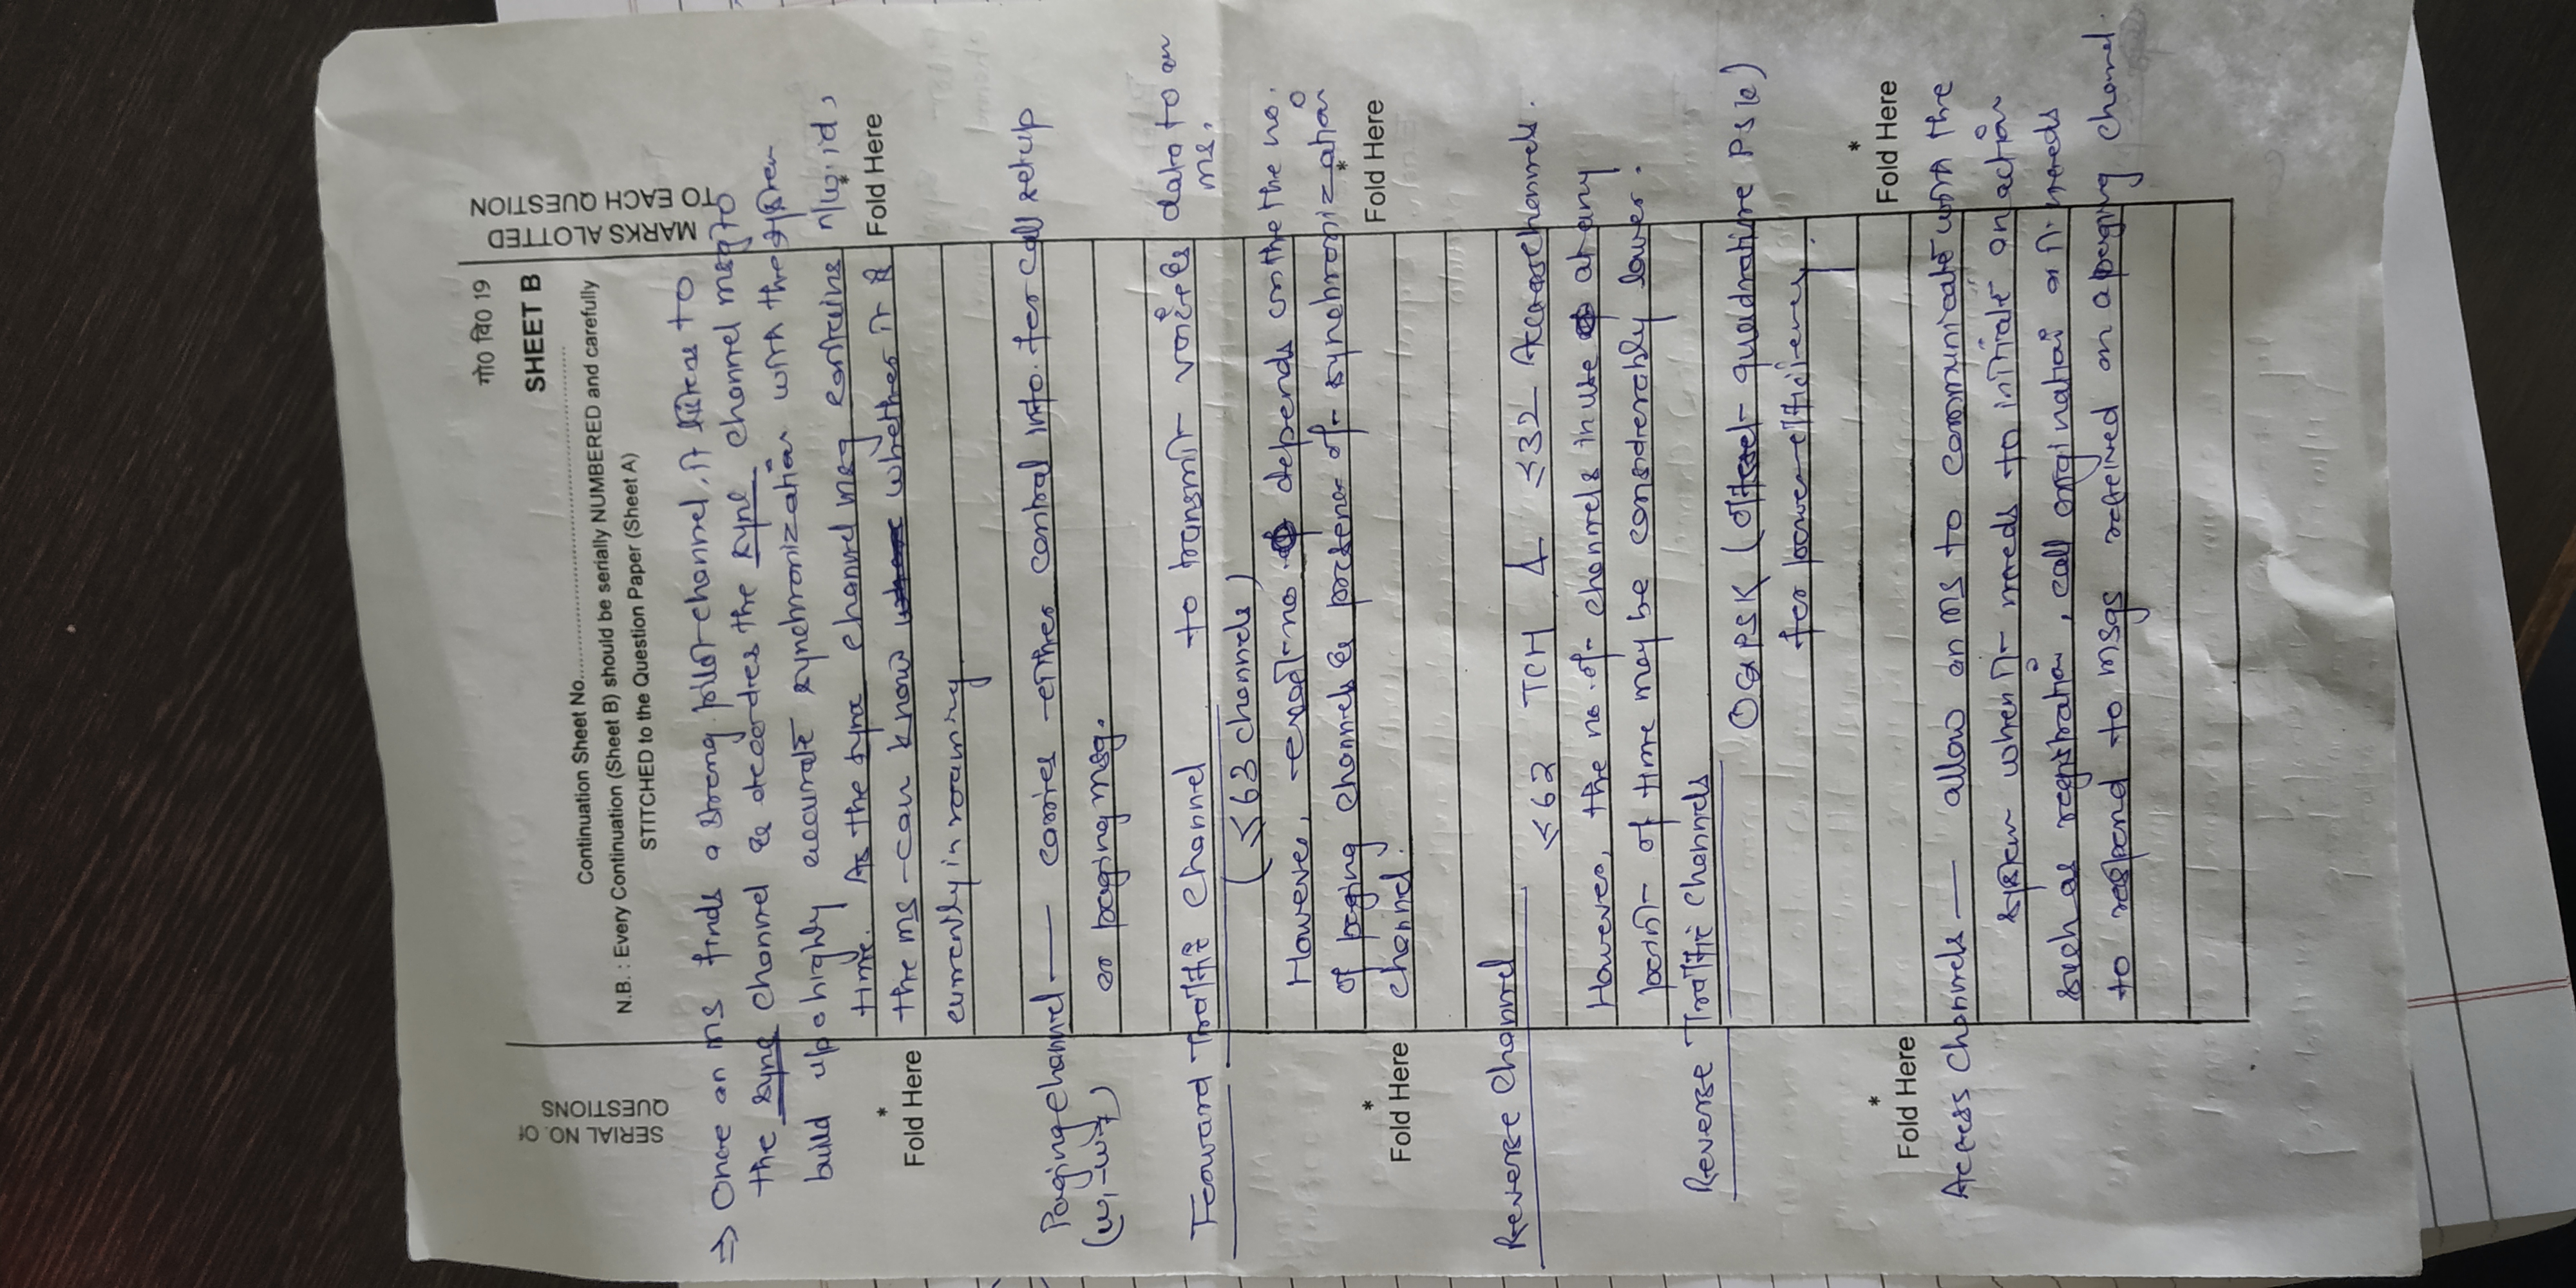 गो0 वि0 19
SERIAL NO. Of
QUESTIONS
SHEET B
MARKS ALOTTED
TO EACH QUESTION
Continuation Sheet No.
N.B. : Every Continuation (Sheet B) should be serially NUMBERED and carefully
STITCHED to the Question Paper (Sheet A)
⇒ Once an ms finds a strong pilot channel, it listens to
the sync channel & decordes the sync channel msg to
build up a highly accurate synchronization with the system
time. As the sync channel msg contains n/w. id,
* Fold Here
the ms can know whether it is
* Fold Here
currently in roaming
Paging channel — carries either control info. for call setup
(w1-w7) or paging msg.
Forward Traffic Channel to transmit voice & data to an
ms.
(≤63 channels)
However, exact no. depends on the the no.
of paging channels & presence of synchronization
* Fold Here
channel.
* Fold Here
Reverse Channel
≤62 TCH & ≤32 Access Channels.
However, the no. of channels in use at any
point of time may be considerably lower.
Reverse Traffic Channels
OQPSK (offset quadrature PSK)
for power efficiency.
* Fold Here
* Fold Here
Access Channels — allow an ms to communicate with the
system when it needs to initiate an action
such as registration, call origination or it needs
to respond to msgs received on a paging channel.